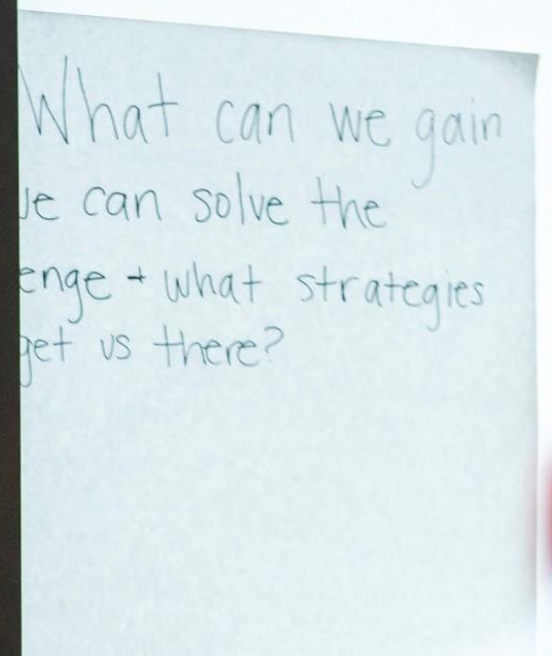 What can we gain
e can solve the
enge + what strategies
get us there?